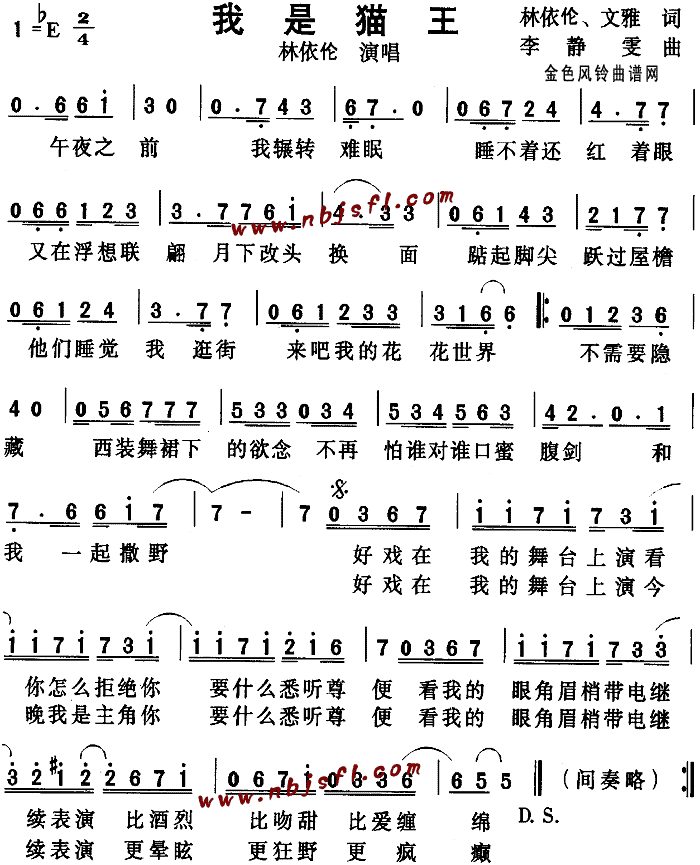 我是猫王
1=♭E 2/4
林依伦、文雅 词
林依伦 演唱
李静雯 曲
金色风铃曲谱网
0．6 6 i | 3 0 | 0．7 4 3 | 6 7．0 | 0 6 7 2 4 | 4．7 7 |
午夜之前 我辗转 难眠 睡不着还 红着眼
0 6 6 1 2 3 | 3．7 7 7 6 i | 4．3 3 | 0 6 1 4 3 | 2 1 7 7 |
www.nbjsfl.com
又在浮想联 翩 月下改头 换 面 踮起脚尖 跃过屋檐
0 6 1 2 4 | 3．7 7 | 0 6 1 2 3 3 | 3 1 6 6 ‖: 0 1 2 3 6 |
他们睡觉 我 逛街 来吧我的花 花世界 不需要隐
4 0 | 0 5 6 7 7 7 | 5 3 3 0 3 4 | 5 3 4 5 6 3 | 4 2．0．1 |
藏 西装舞裙下 的欲念 不再 怕谁对谁口蜜 腹剑 和
7．6 6 i 7 | 7 - | 7 0 3 6 7 | i i 7 i 7 3 i |
我 一起撒野 好戏在 我的舞台上演看
好戏在 我的舞台上演今
i i 7 i 7 3 i | i i 7 i 2 i 6 | 7 0 3 6 7 | i i 7 i 7 3 i |
你怎么拒绝你 要什么悉听尊 便 看我的 眼角眉梢带电继
晚我是主角你 要什么悉听尊 便 看我的 眼角眉梢带电继
3 2 #i 2 2 6 7 i | 0 6 7 i 0 3 3 6 | 6 5 5 ‖ (间奏略) :‖
www.nbjsfl.com
续表演 比酒烈 比吻甜 比爱缠 绵 D.S.
续表演 更晕眩 更狂野 更疯 癫